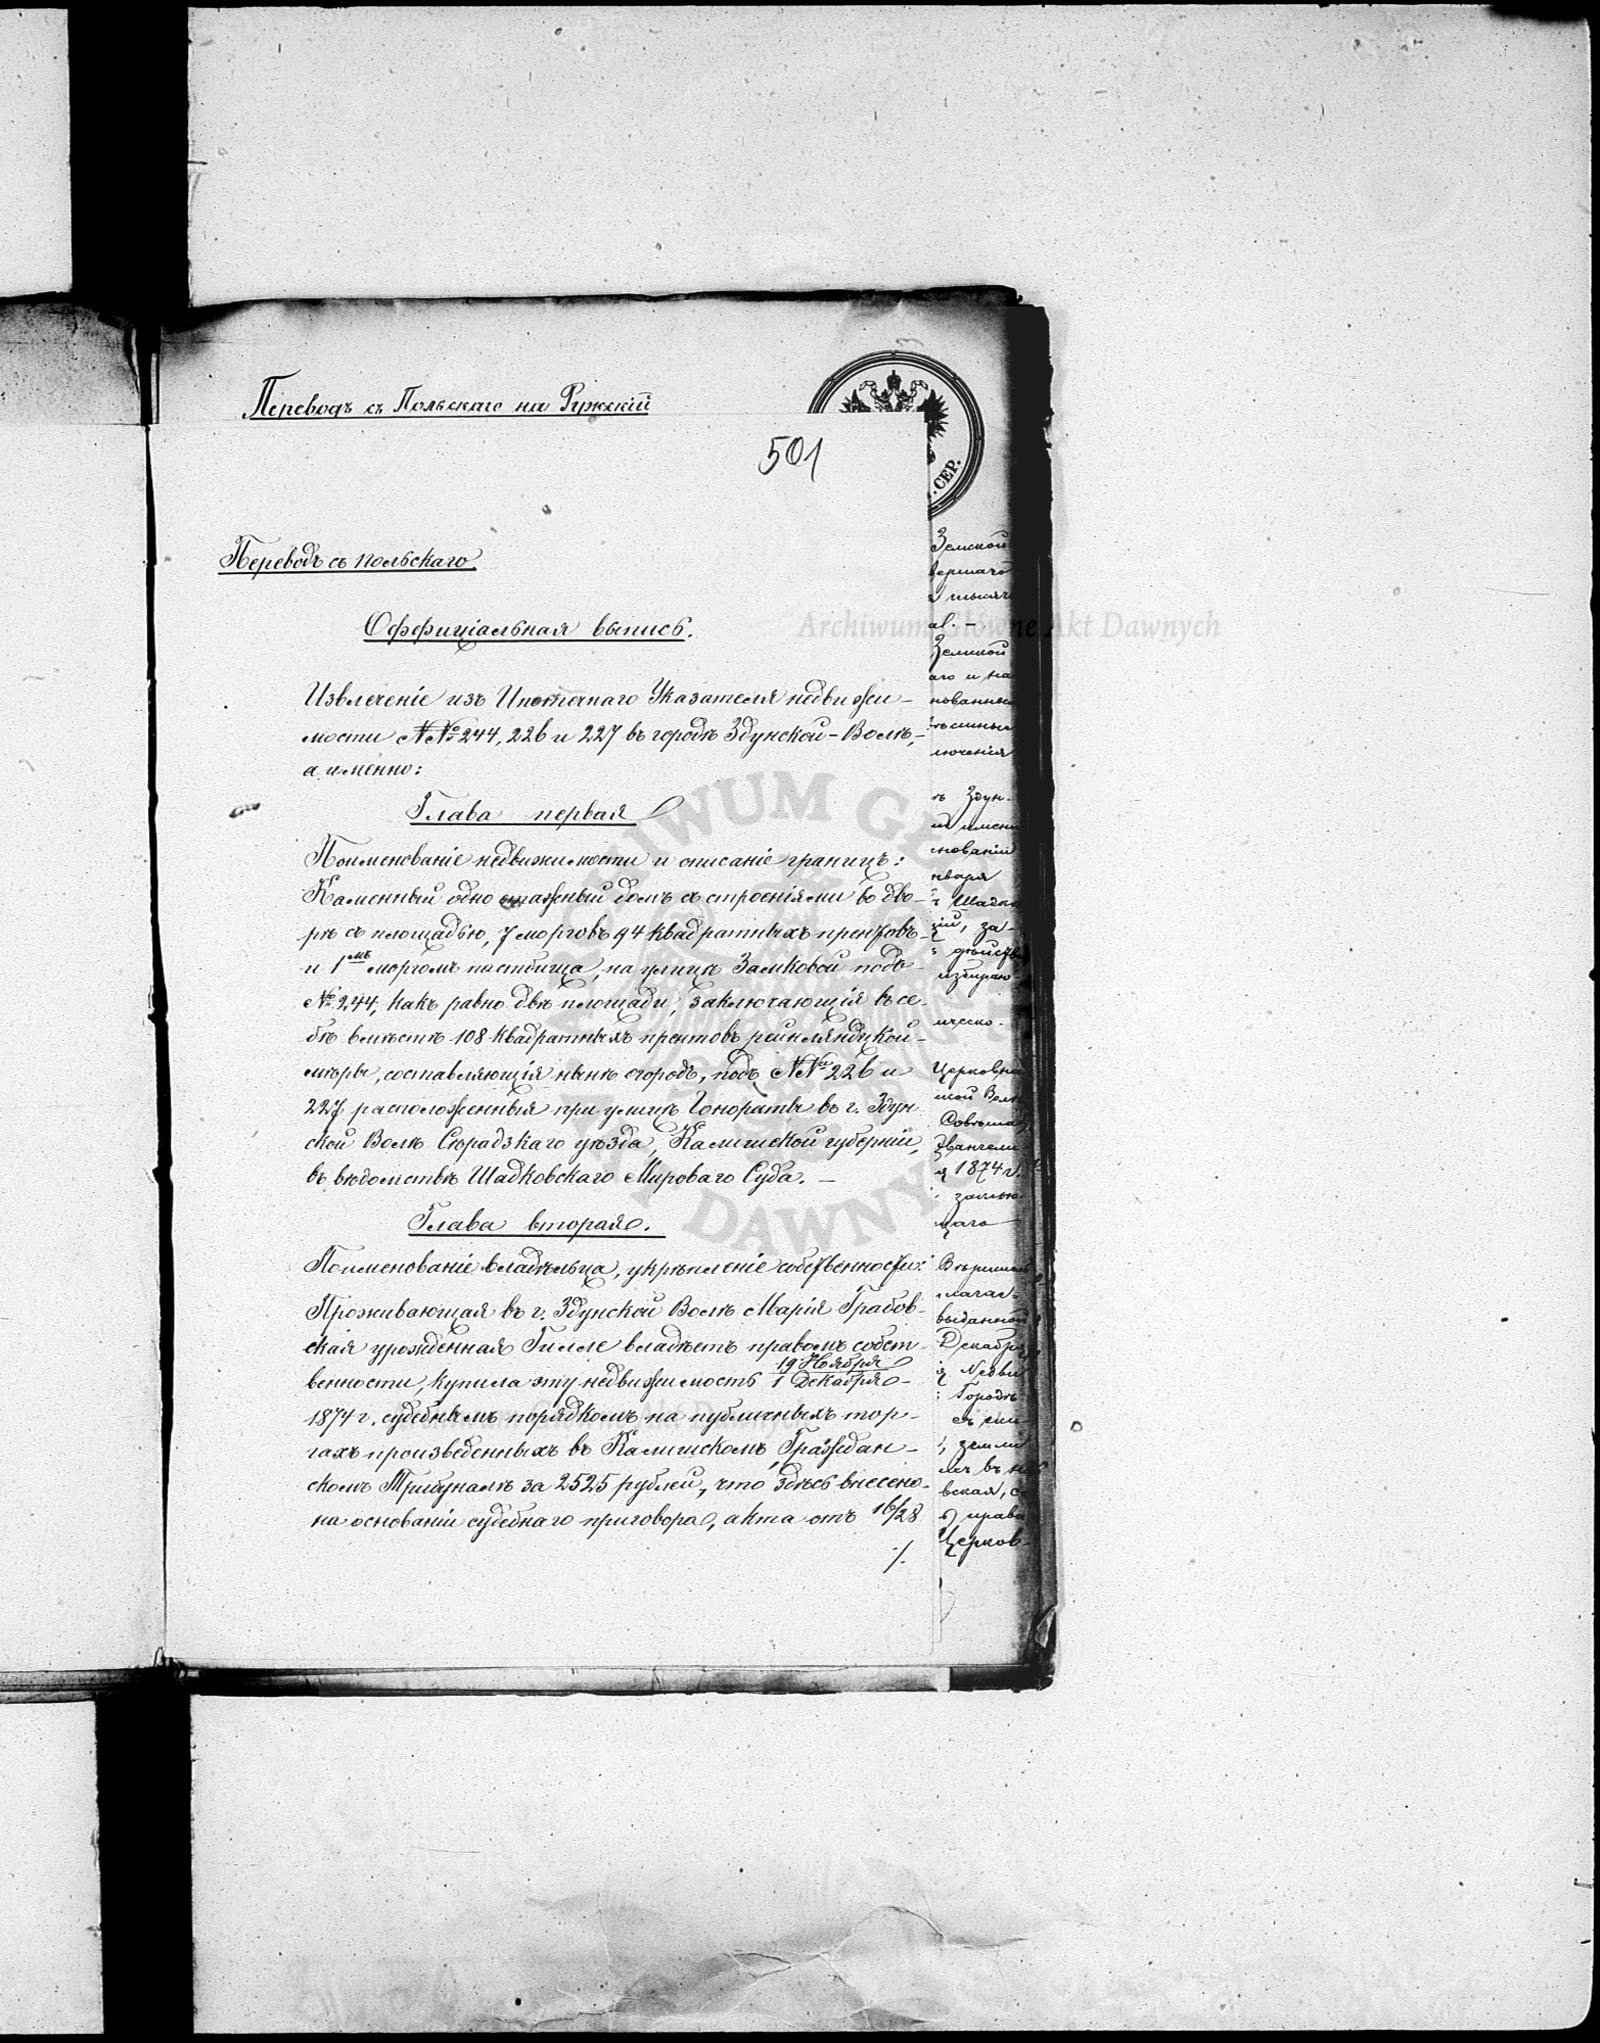 Переводъ съ Польскаго на Руж­скій
501
Переводъ съ польскаго
Оффиціальная выпись.
Извлеченіе изъ Ипотечнаго Указателя недвижи-
мости №№ 244, 226 и 227 въ городѣ Здунской-Волѣ,-
а именно:
Глава первая
Поименованіе недвижимости и описаніе границъ:
Каменный одноэтажный домъ съ строеніями во дво-
рѣ съ площадью, 7 морговъ 94 квадратныхъ прентовъ-
и 1мъ моргомъ пастбища, на улицѣ Замковой подъ-
№ 244, какъ равно двѣ площади, заключающія въ се-
бѣ вмѣстѣ 108 квадратныхъ прентовъ рейнляндской-
мѣры, составляющія нынѣ огородъ, подъ №№ 226 и
227 расположенныя при улицѣ Гонораты въ г. Здун-
ской Волѣ Сѣрадзкаго уѣзда, Калишской губерніи,
въ вѣдомствѣ Шадковскаго Мироваго Суда. —
Глава вторая.
Поименованіе владѣльца, укрѣпленіе собственности:
Проживающая въ г. Здунской Волѣ Марія Грабов-
ская урожденная Гилле владѣетъ правомъ собст-
венности, купила эту недвижимость 19 Ноября / 1 Декабря-
1874 г. судебнымъ порядкомъ на публичныхъ тор-
гахъ произведенныхъ въ Калишскомъ Граждан-
скомъ Трибуналѣ за 2525 рублей, что здѣсь внесено-
на основаніи судебнаго приговора, акта отъ 16/28
./.
. СЕР.
Земской
Земской
аго и на
нованные
лючения
ъ Здун-
снованіи
нваря
ъ Шадк
ій, за-
ическо-
Церковна
Евангели
я 1874 г.
щаго
выданной
Декабря
я Недви
Городѣ
, земли
вская, с
) права
Церков-
Archiwum Główne Akt Dawnych